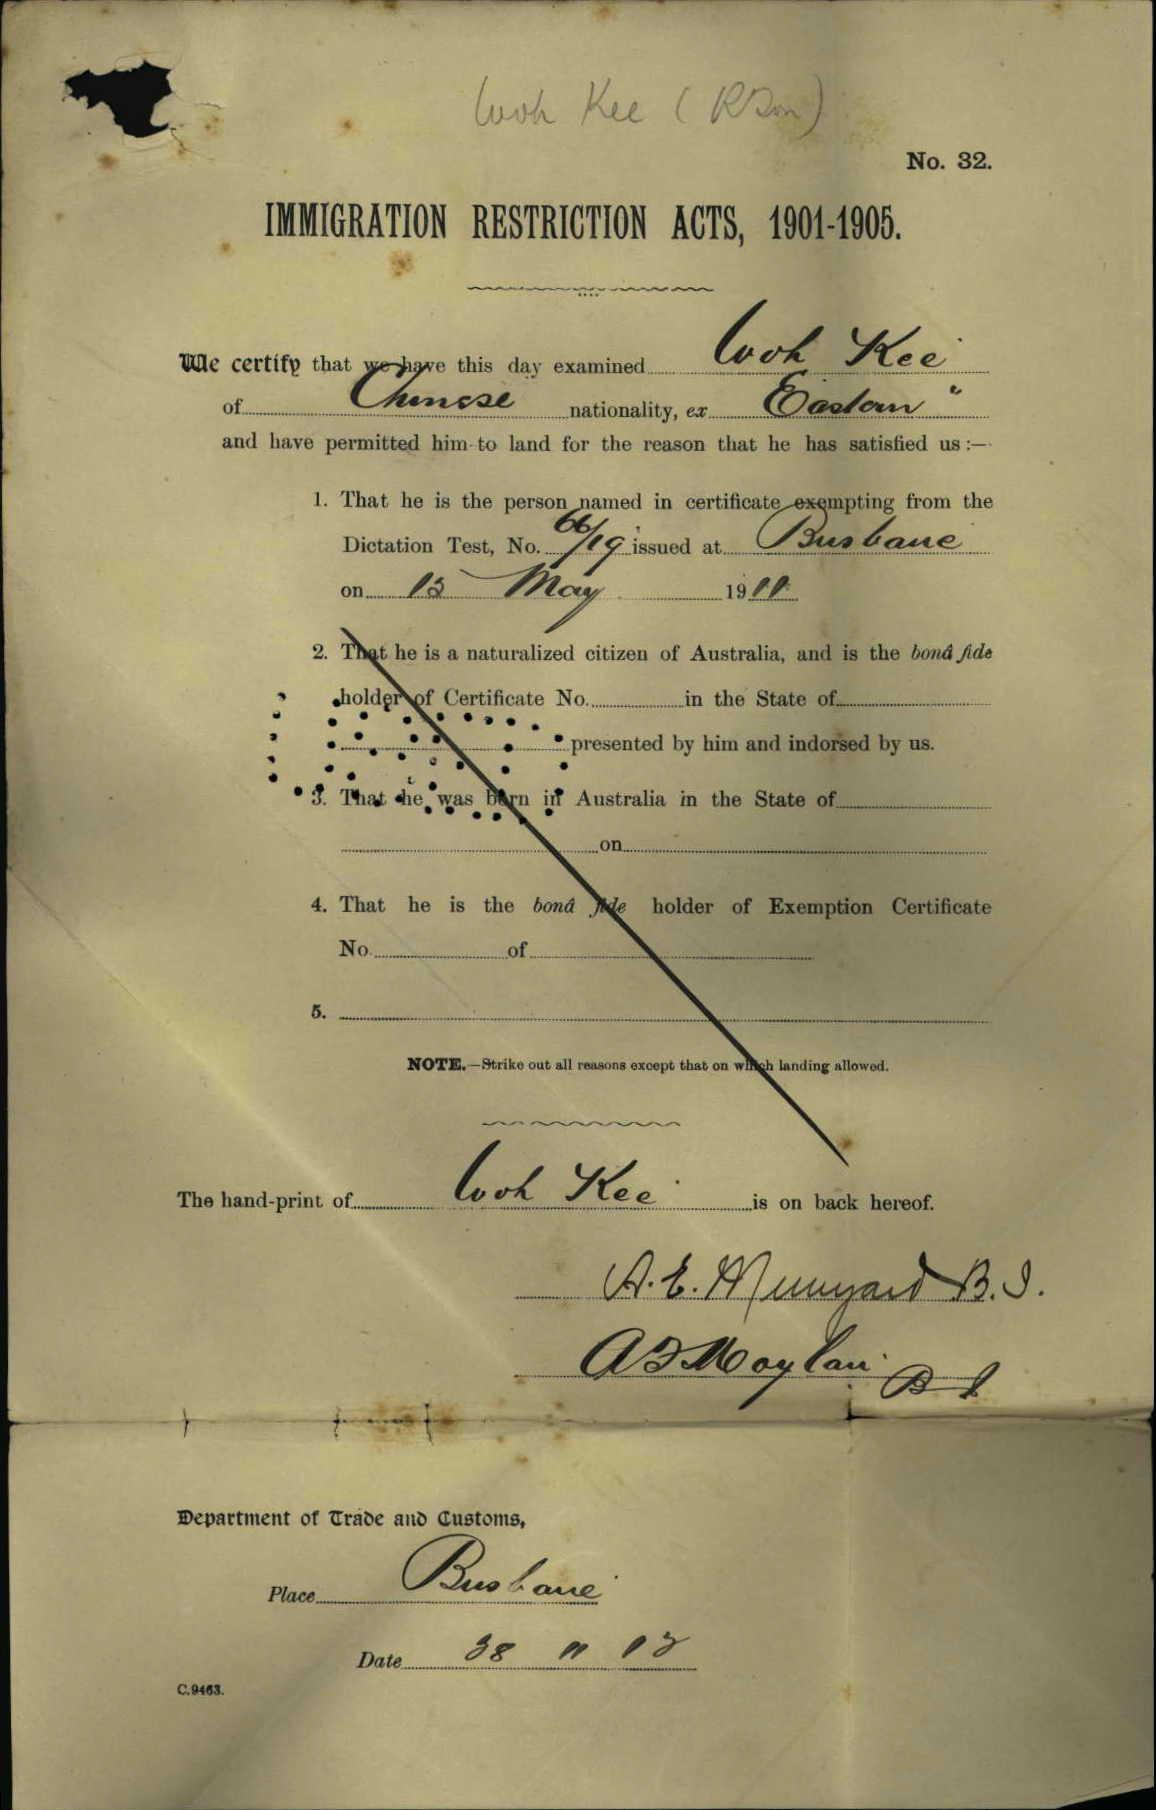 Woh Kee (
No. 32.
IMMIGRATION RESTRICTION ACTS, 1901-1905.
We certify that we have this day examined Woh Kee
of Chinese nationality, ex Eastern "
and have permitted him to land for the reason that he has satisfied us :—
1. That he is the person named in certificate exempting from the
Dictation Test, No. 66/19 issued at Brisbane
on 13 May 1911
2. That he is a naturalized citizen of Australia, and is the bonâ fide
holder of Certificate No. in the State of
presented by him and indorsed by us.
3. That he was born in Australia in the State of
on
4. That he is the bonâ fide holder of Exemption Certificate
No. of
5.
NOTE.—Strike out all reasons except that on which landing allowed.
The hand-print of Woh Kee is on back hereof.
A. E. B. I.
A F Moylan B I
Department of Trade and Customs,
Place Brisbane
Date 28 11 12
C.9463.